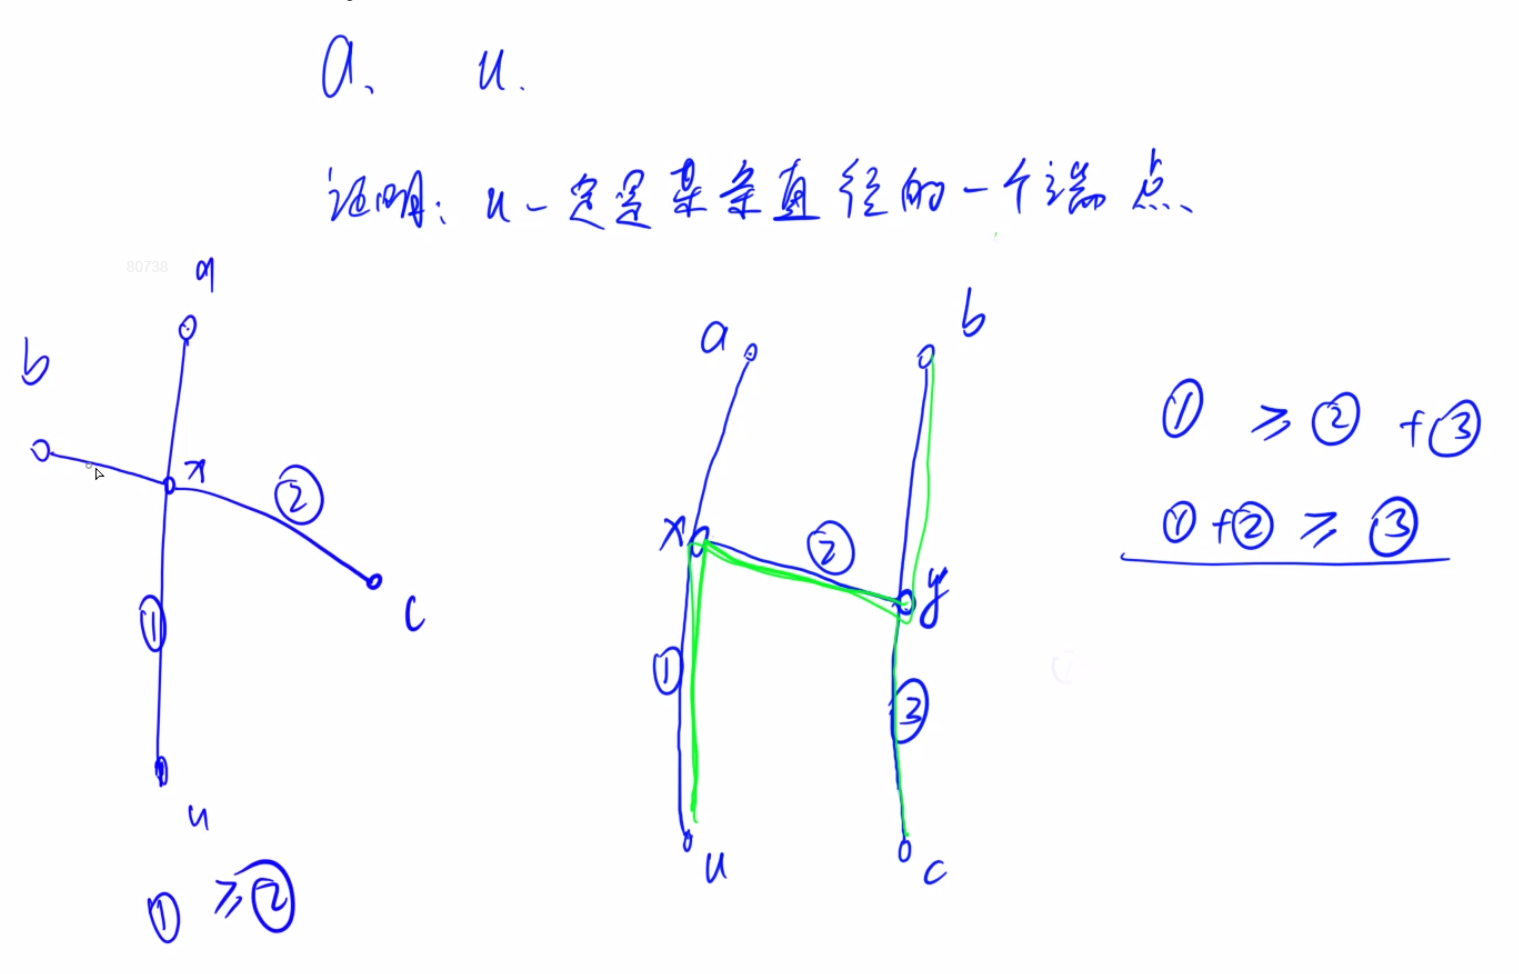 a、 u.
证明: u一定是某条直径的一个端点、
80738
a
b
x
②
①
c
u
① ≥ ②
a
b
x
②
y
①
③
u
c
① ≥ ② + ③
① + ② ≥ ③